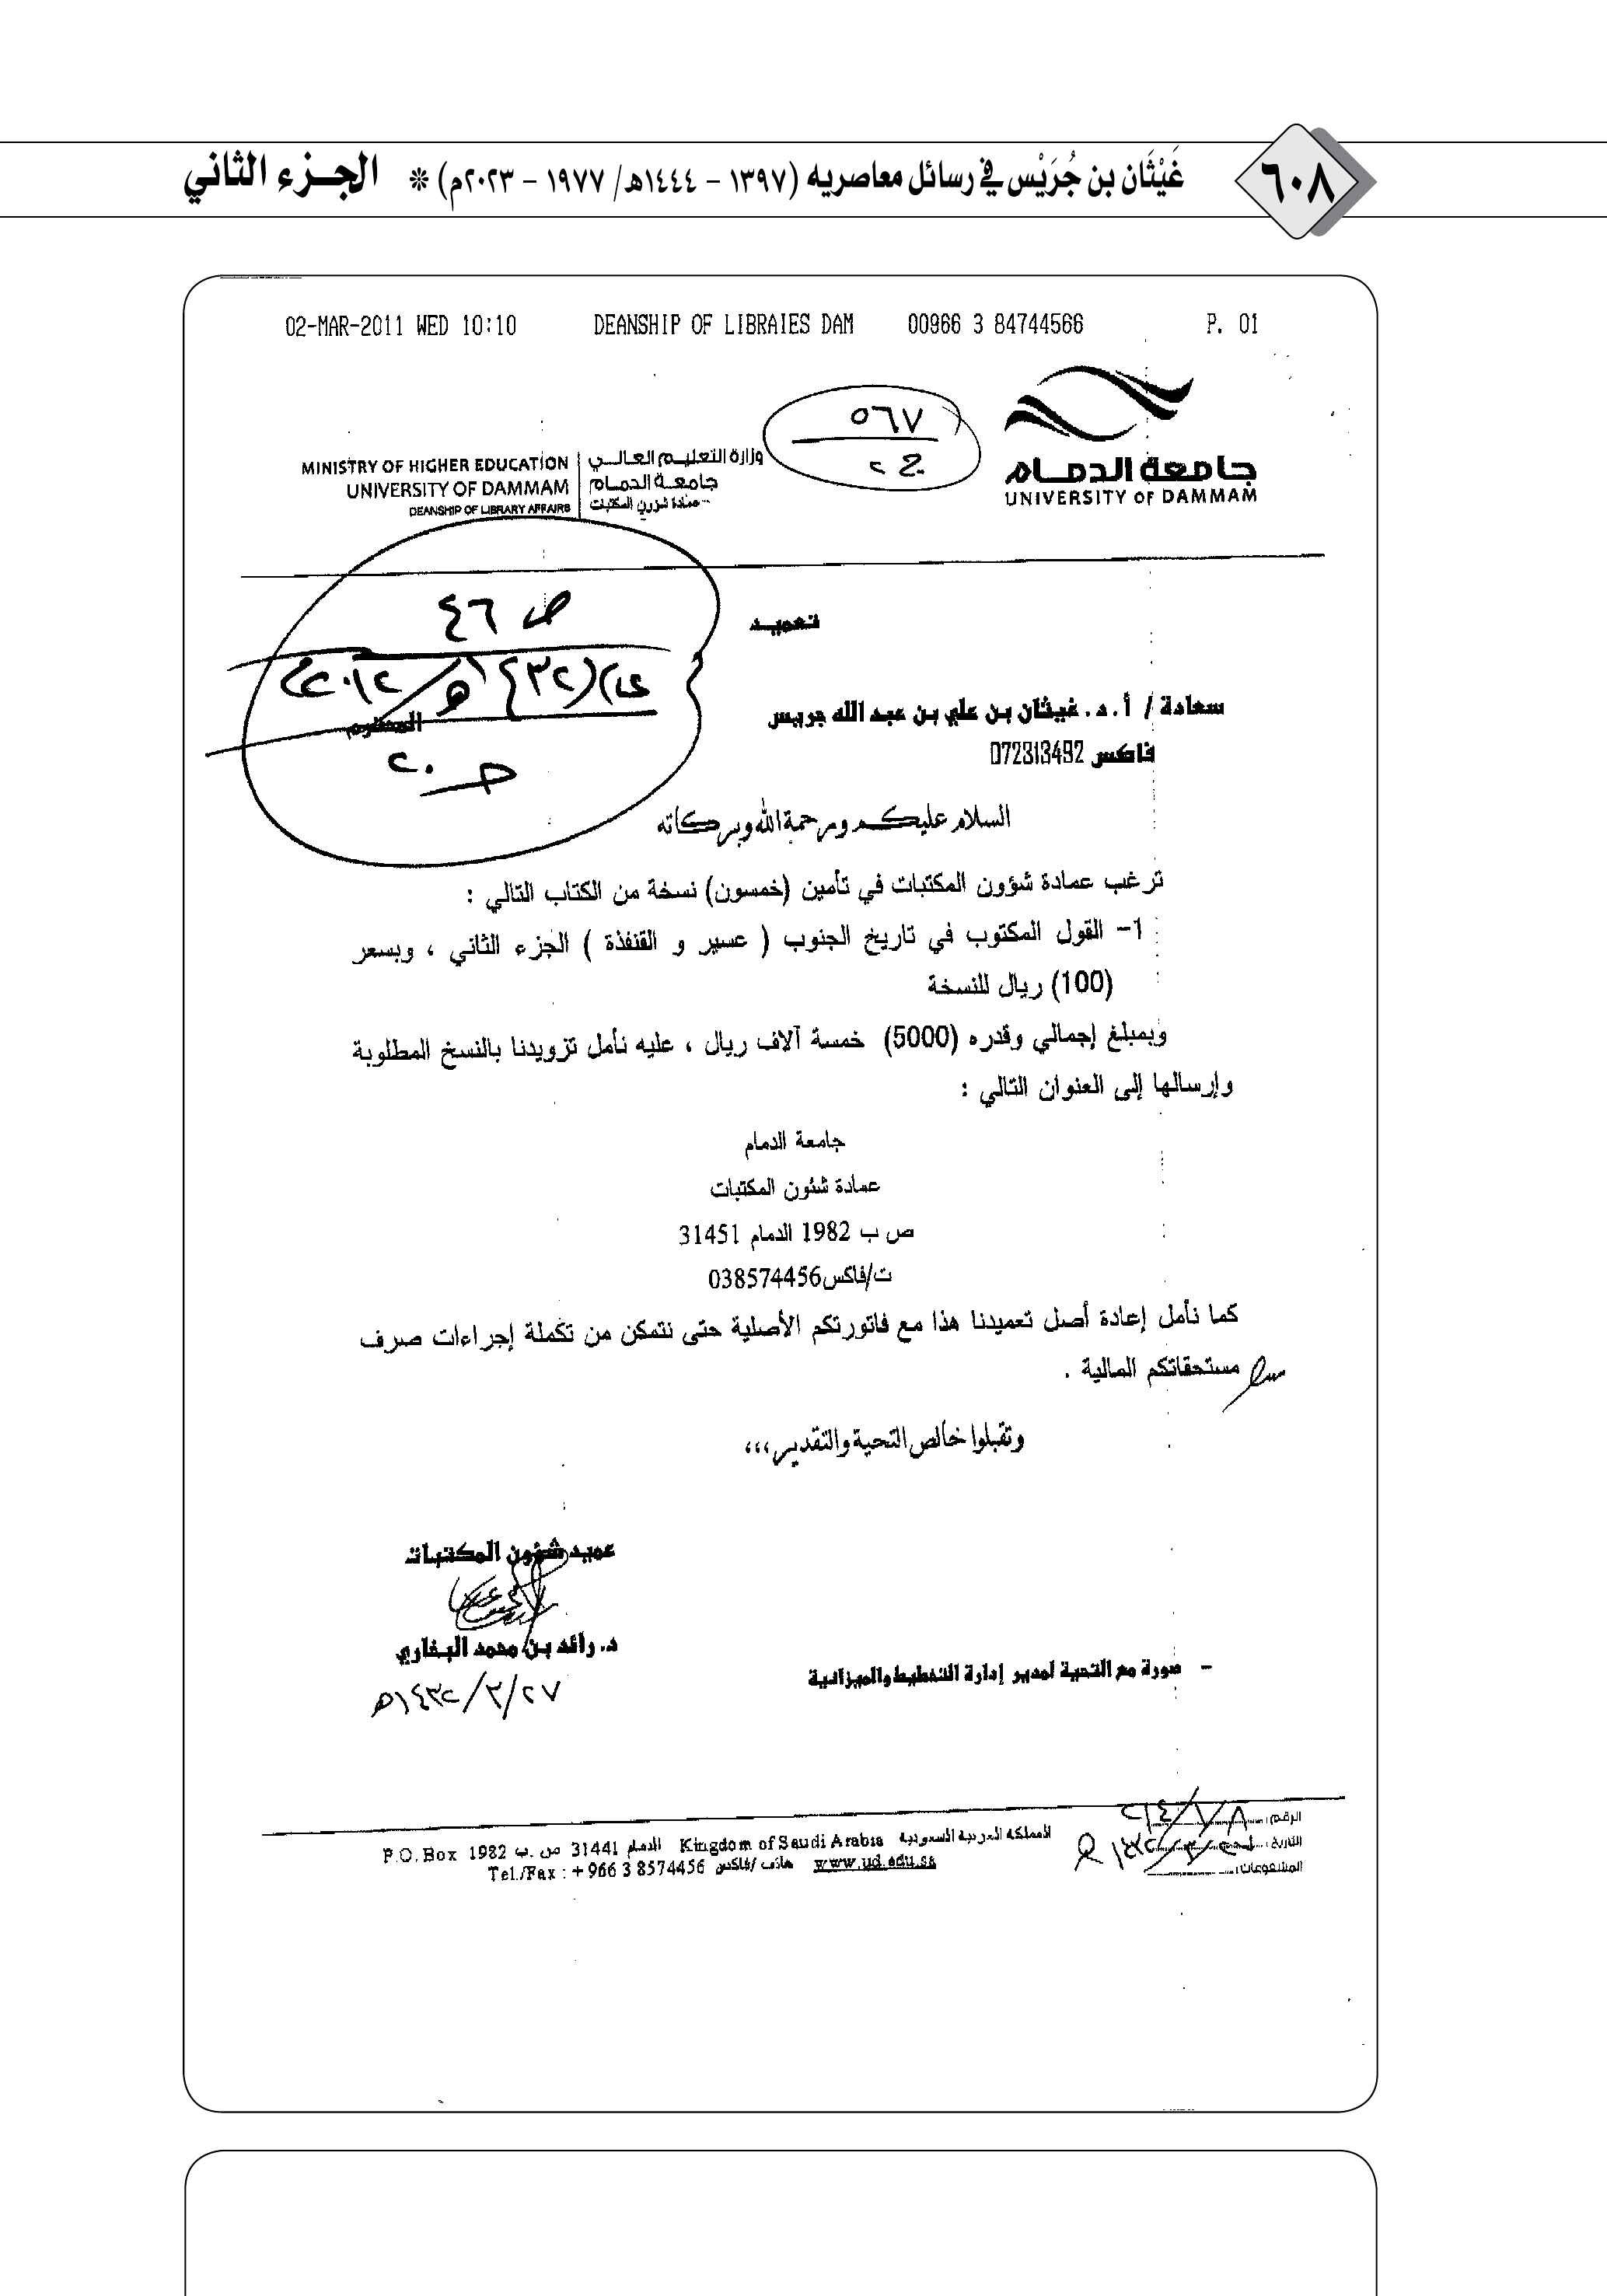 ٦٠٨
غَيْثَان بن جُرَيْس في رسائل معاصريه (١٣٩٧ - ١٤٤٤هـ/ ١٩٧٧ - ٢٠٢٣م) * الجزء الثاني
02-MAR-2011 WED 10:10 DEANSHIP OF LIBRAIES DAM 00966 3 84744566 P. 01
جامعة الدمام
UNIVERSITY OF DAMMAM
٥٦٧
ج ٢
وزارة التعليم العالي
جامعة الدمام
عمادة شؤون المكتبات
MINISTRY OF HIGHER EDUCATION
UNIVERSITY OF DAMMAM
DEANSHIP OF LIBRARY AFFAIRS
ص ٤٦
ج ٢٠
تعميد
سعادة / أ.د. غيثان بن علي بن عبد الله جريس المحترم
فاكس 072313492
السلام عليكم ورحمة الله وبركاته
ترغب عمادة شؤون المكتبات في تأمين (خمسون) نسخة من الكتاب التالي :
1- القول المكتوب في تاريخ الجنوب ( عسير و القنفذة ) الجزء الثاني ، وبسعر
(100) ريال للنسخة
وبمبلغ إجمالي وقدره (5000) خمسة آلاف ريال ، عليه نأمل تزويدنا بالنسخ المطلوبة
وإرسالها إلى العنوان التالي :
جامعة الدمام
عمادة شئون المكتبات
ص ب 1982 الدمام 31451
ت/فاكس038574456
كما نأمل إعادة أصل تعميدنا هذا مع فاتورتكم الأصلية حتى نتمكن من تكملة إجراءات صرف
مستحقاتكم المالية .
وتقبلوا خالص التحية والتقدير،،،
عميد شؤون المكتبات
د. رائد بن محمد البخاري
٢٧/٣/١٤٣٢هـ
- صورة مع التحية لمدير إدارة التخطيط والميزانية
الرقم:
التاريخ:
المشفوعات:
المملكة العربية السعودية Kingdom of Saudi Arabia الدمام 31441 ص .ب P.O.Box 1982
www.ud.edu.sa هاتف /فاكس Tel./Fax : + 966 3 8574456